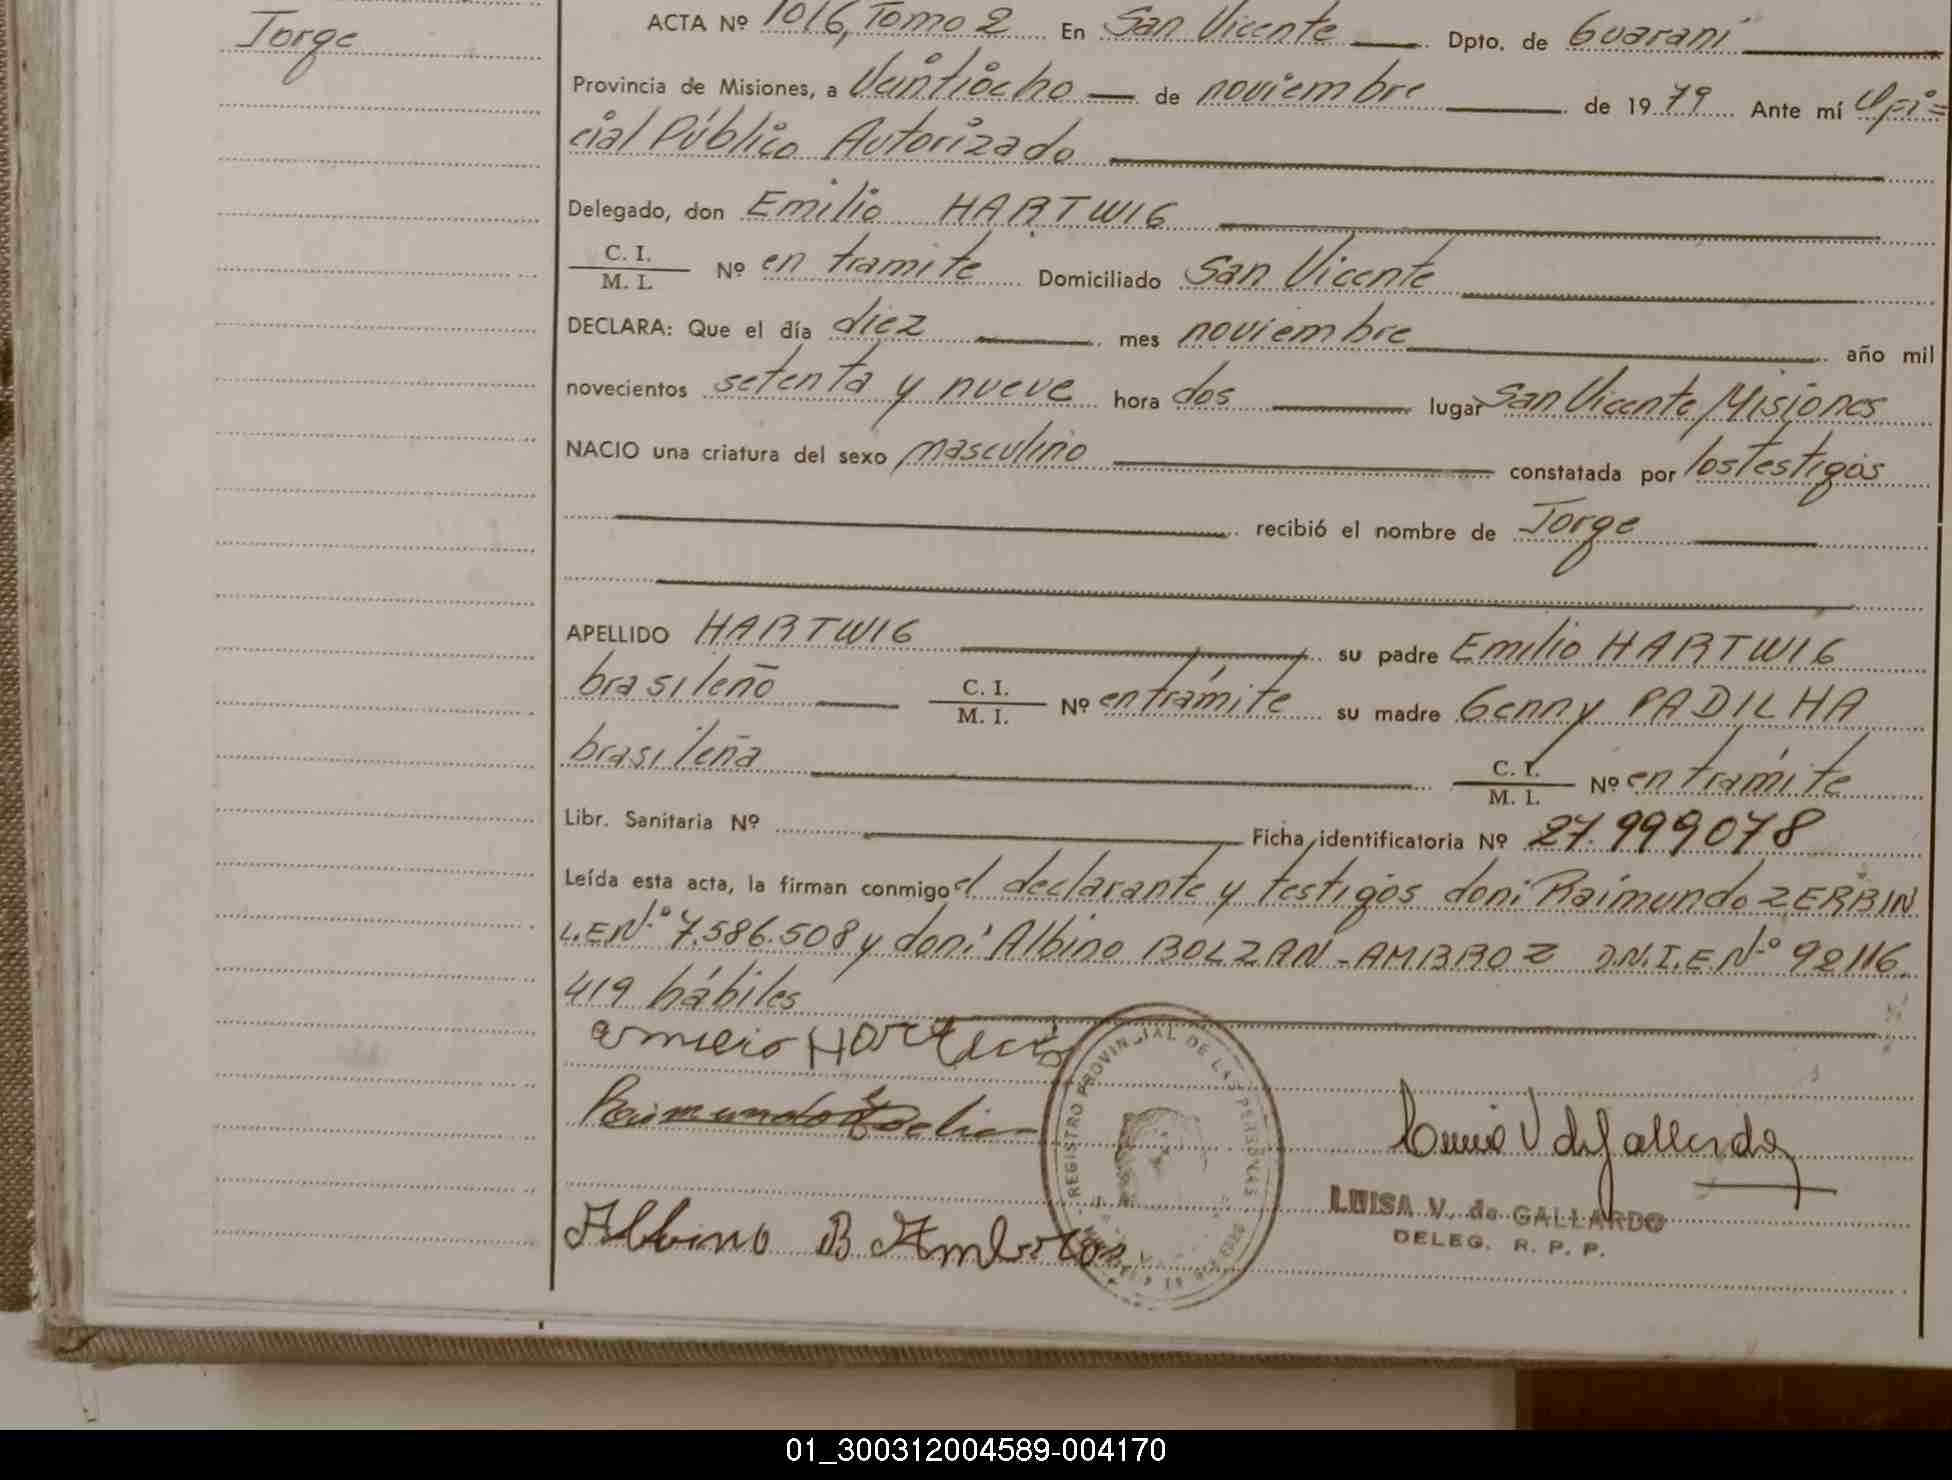 Jorge
ACTA Nº 1016, Tomo 2 En San Vicente Dpto. de Guaraní
Provincia de Misiones, a Veintiocho de noviembre de 1979 Ante mí Ofi=
cial Público Autorizado
Delegado, don Emilio HARTWIG
C. I.
M. I. Nº en tramite Domiciliado San Vicente
DECLARA: Que el día diez mes noviembre año mil
novecientos setenta y nueve hora dos lugar San Vicente, Misiones
NACIO una criatura del sexo masculino constatada por los testigos
recibió el nombre de Jorge
APELLIDO HARTWIG su padre Emilio HARTWIG
brasileño C. I. M. I. Nº en trámite su madre Genny PADILHA
brasileña C. I. M. I. Nº en trámite
Libr. Sanitaria Nº Ficha identificatoria Nº 27.999078
Leída esta acta, la firman conmigo el declarante y testigos doni Raimundo ZERBIN
L.E.Nº 7.586.508 y doni Albino BOLZAN-AMBROZ D.N.I.E.Nº 92116.
419 hábiles
Raimundo
Albino B Ambros
REGISTRO PROVINCIAL DE LAS PERSONAS
LUISA V. de GALLARDO
DELEG. R. P. P.
01_300312004589-004170